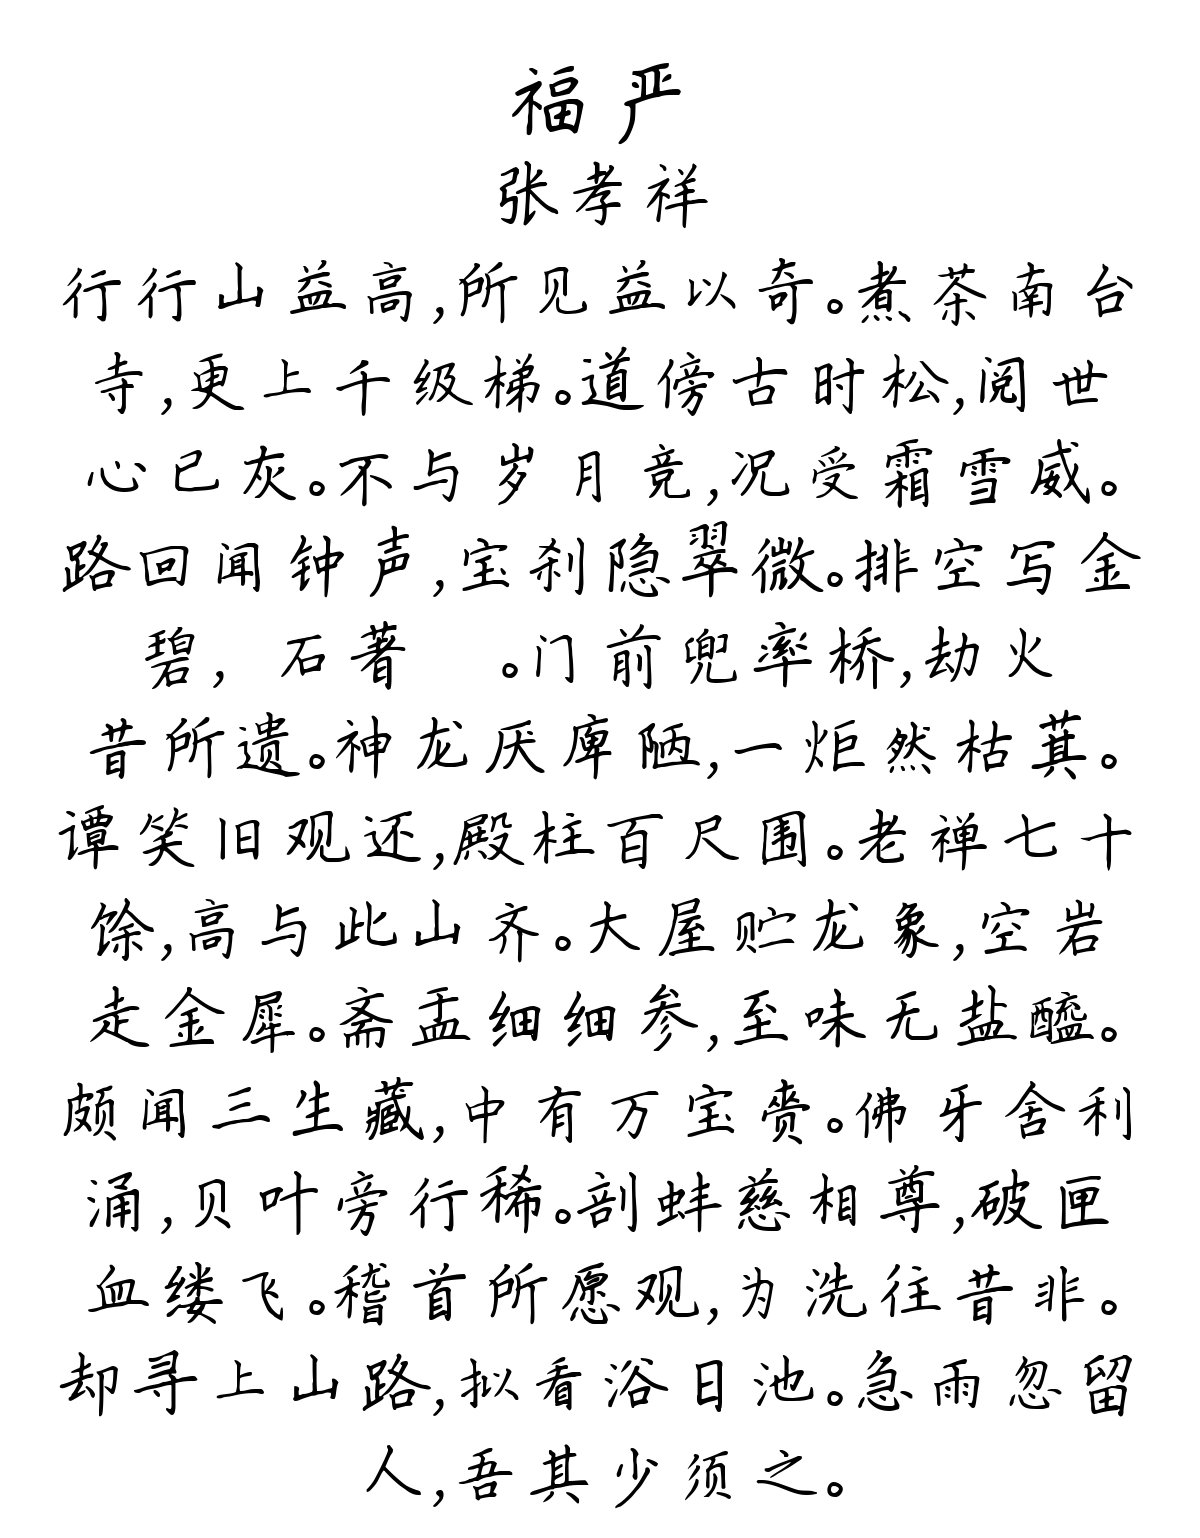 福严
张孝祥
行行山益高,所见益以奇。煮茶南台
寺,更上千级梯。道傍古时松,阅世
心已灰。不与岁月竞,况受霜雪威。
路回闻钟声,宝刹隐翠微。排空写金
碧, 石著 。门前兜率桥,劫火
昔所遗。神龙厌庳陋,一炬然枯萁。
谭笑旧观还,殿柱百尺围。老禅七十
馀,高与此山齐。大屋贮龙象,空岩
走金犀。斋盂细细参,至味无盐醯。
颇闻三生藏,中有万宝赍。佛牙舍利
涌,贝叶旁行稀。剖蚌慈相尊,破匣
血缕飞。稽首所愿观,为洗往昔非。
却寻上山路,拟看浴日池。急雨忽留
人,吾其少须之。